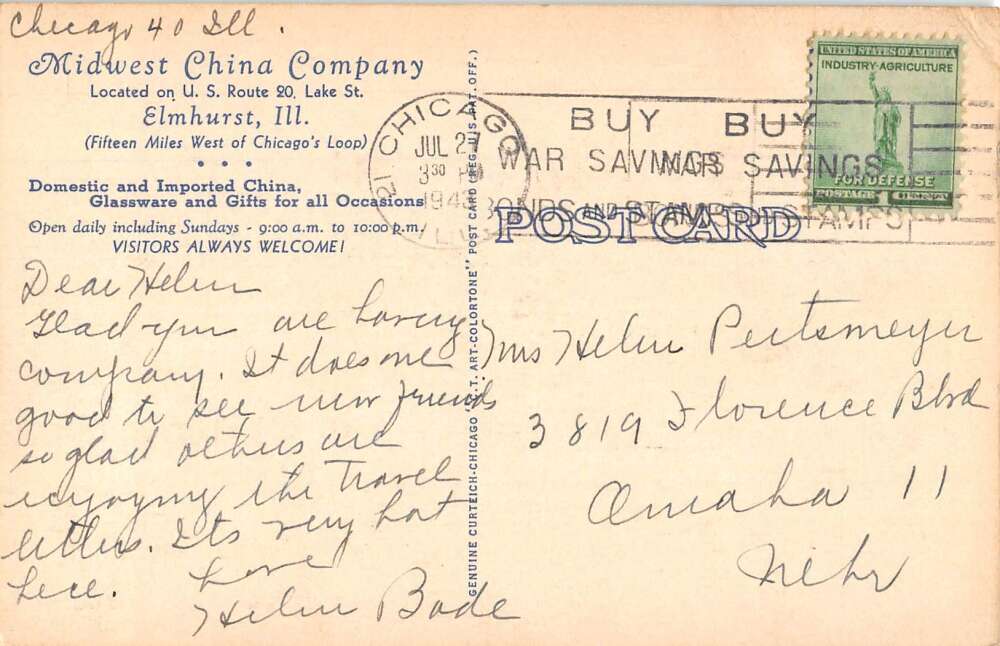 Chicago 40 Ill.
Midwest China Company
Located on U. S. Route 20, Lake St.
Elmhurst, Ill.
(Fifteen Miles West of Chicago's Loop)
• • •
Domestic and Imported China,
Glassware and Gifts for all Occasions
Open daily including Sundays - 9:00 a.m. to 10:00 p.m.
VISITORS ALWAYS WELCOME!
Dear Helen
Glad you are having
company. It does one
good to see new friends
so glad others are
enjoying the Travel
letters. Its very hot
here. Love
Helen Bode
GENUINE CURTEICH-CHICAGO "C.T. ART-COLORTONE" POST CARD (REG. U.S. PAT. OFF.)
CHICAGO
21
JUL 27
3 30 PM
BUY BUY
WAR SAVINGS WAR SAVINGS
BONDS AND STAMPS STAMPS
POST CARD
UNITED STATES OF AMERICA
INDUSTRY-AGRICULTURE
FOR DEFENSE
POSTAGE 1¢
Mrs Helen Peitsmeyer
3819 Florence Blvd
Omaha 11
Nebr